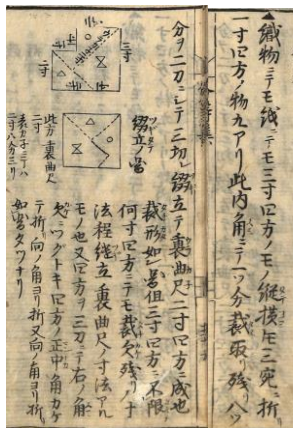 ▲織物ニテモ紙ニテモ三寸四方ノモノ縦横モ三宛ニ折
一寸四方ノ物九アリ此内角ニテ一ツ分裁取リ残リ八ツ
分ヲ二刀ニシテ三切レ綴立テ裏曲尺二寸四方ニ成也
綴立ノ圖
裁形如圖但三寸四方ニ不限
何寸四方ニテモ裁欠残リノ寸
法程継立裏曲尺ノ寸法アル
モノ也又四方ヲ三刀ニテ右ノ角
欠ヲツグトキ四方ノ正中角カケ
テ折向ノ角ヨリ折又向ノ角ヨリ折
如圖タツナリ
二寸
二寸
此方裏曲尺
二寸
表カ子ニテハ
二寸八分三リ